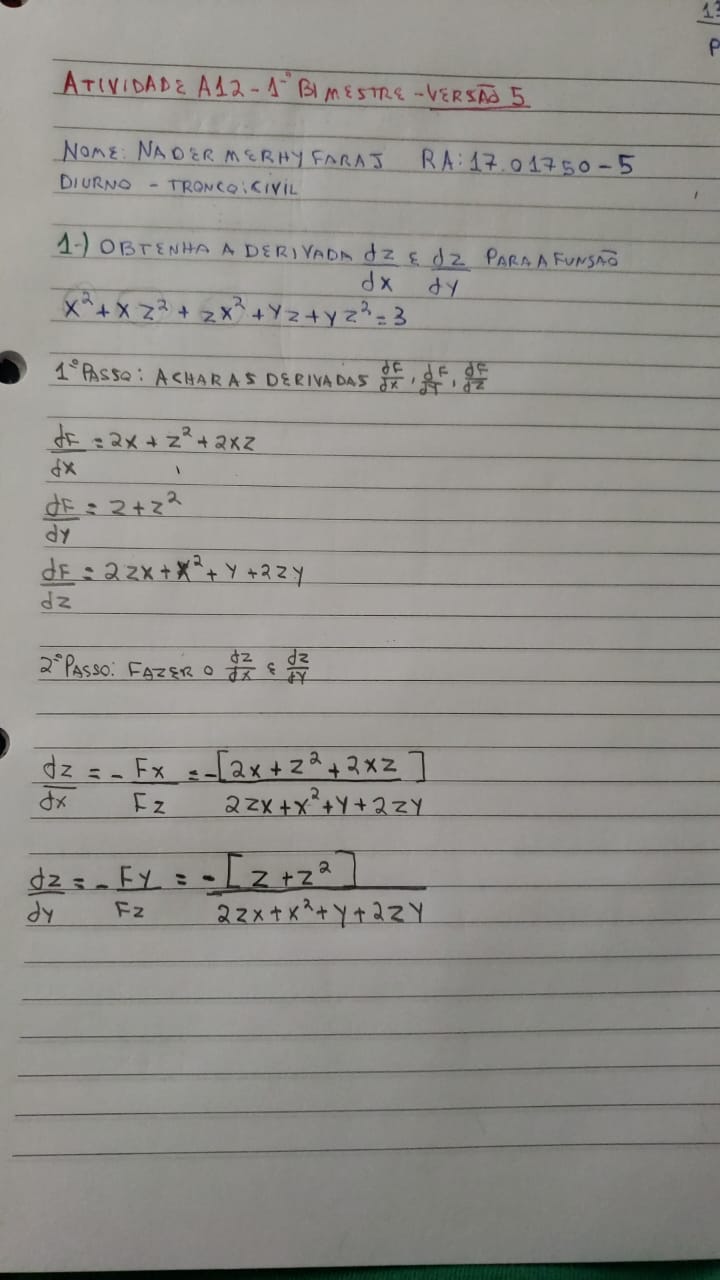 13
P
ATIVIDADE A12 - 1º BIMESTRE - VERSÃO 5
NOME: NADER MERHY FARAJ RA: 17.01750-5
DIURNO - TRONCO: CIVIL
1-) OBTENHA A DERIVADA dz/dx E dz/dy PARA A FUNSÃO
x² + xz² + zx² + yz + yz² = 3
1º PASSO: ACHAR AS DERIVADAS dF/dx, dF/dy, dF/dz
dF/dx = 2x + z² + 2xz
dF/dy = z + z²
dF/dz = 2zx + x² + y + 2zy
2º PASSO: FAZER O dz/dx E dz/dy
dz/dx = - Fx/Fz = -[2x + z² + 2xz]/2zx + x² + y + 2zy
dz/dy = - Fy/Fz = -[z + z²]/2zx + x² + y + 2zy